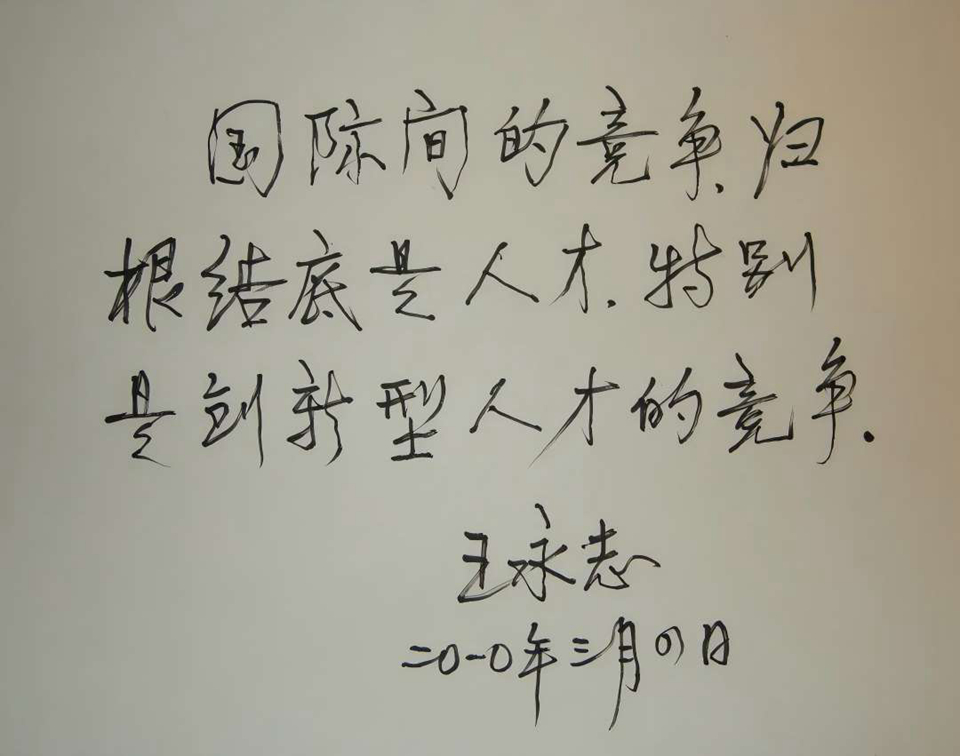 国际间的竞争,归
根结底是人才,特别
是创新型人才的竞争.
王永志
二〇一〇年三月四日